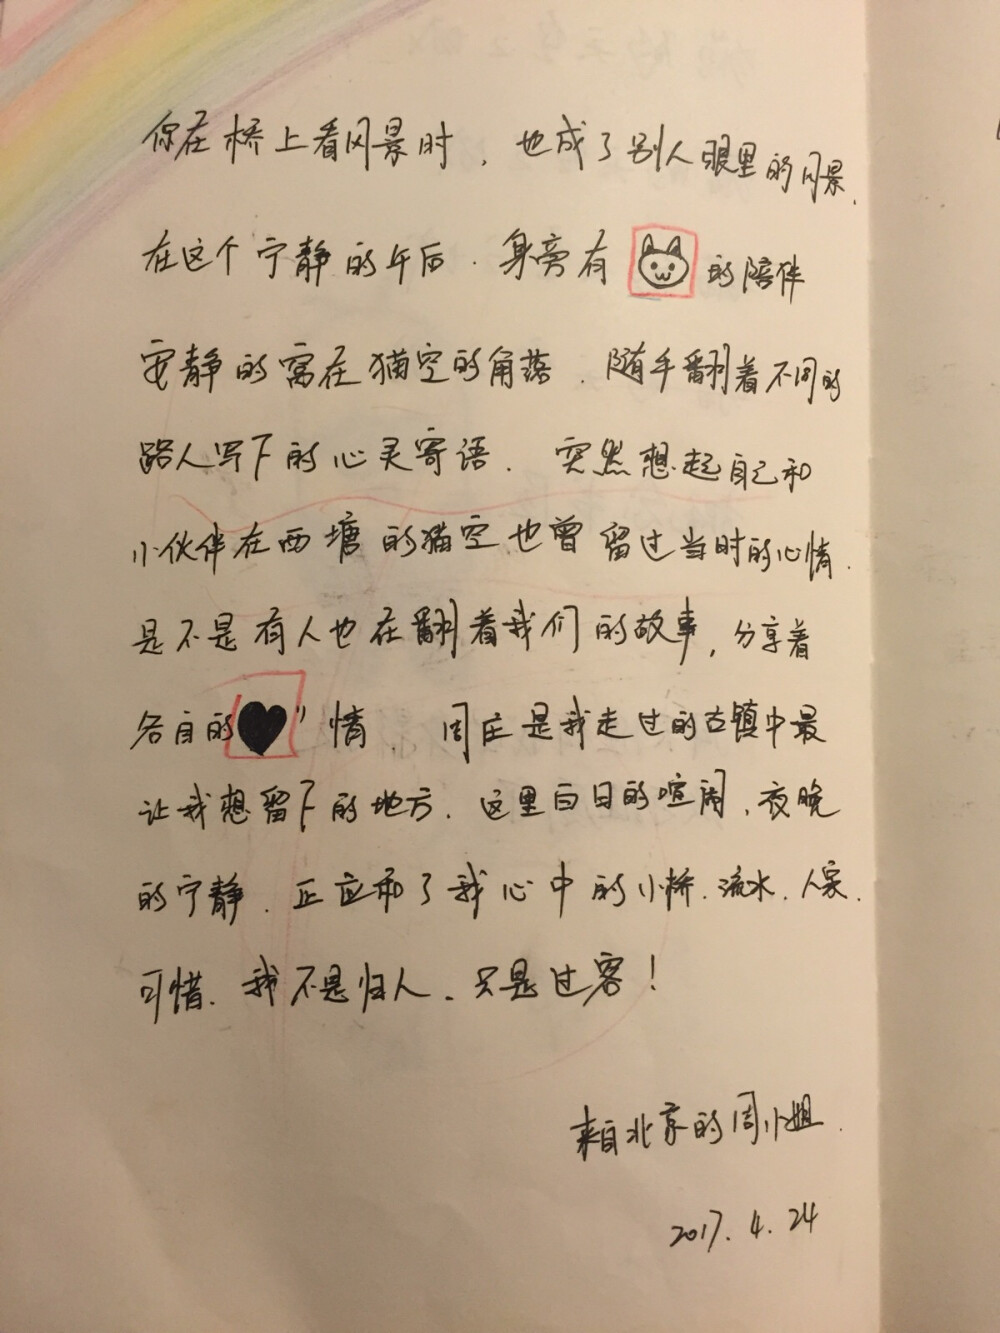 你在桥上看风景时，也成了别人眼里的风景.
在这个宁静的午后.身旁有的陪伴
安静的窝在猫空的角落.随手翻着不同的
路人写下的心灵寄语.突然想起自己和
小伙伴在西塘的猫空也曾留过当时的心情.
是不是有人也在翻着我们的故事,分享着
各自的"情、周庄是我走过的古镇中最
让我想留下的地方.这里白日的喧闹,夜晚
的宁静.正应和了我心中的小桥.流水.人家.
可惜.我不是归人.只是过客!
来自北京的周小姐.
2017.4.24